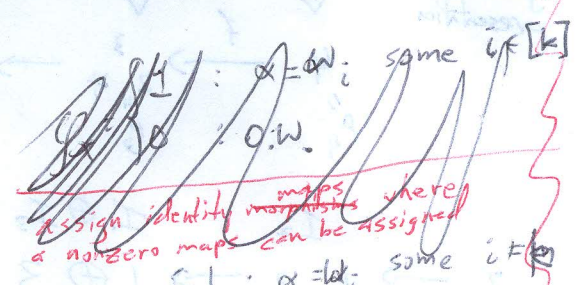 1 : α = w_i some i ∈ [k]
0 : O.W.
maps
assign identity morphisms where
a nonzero maps can be assigned
1 : α = w_i some i ∈ [k]